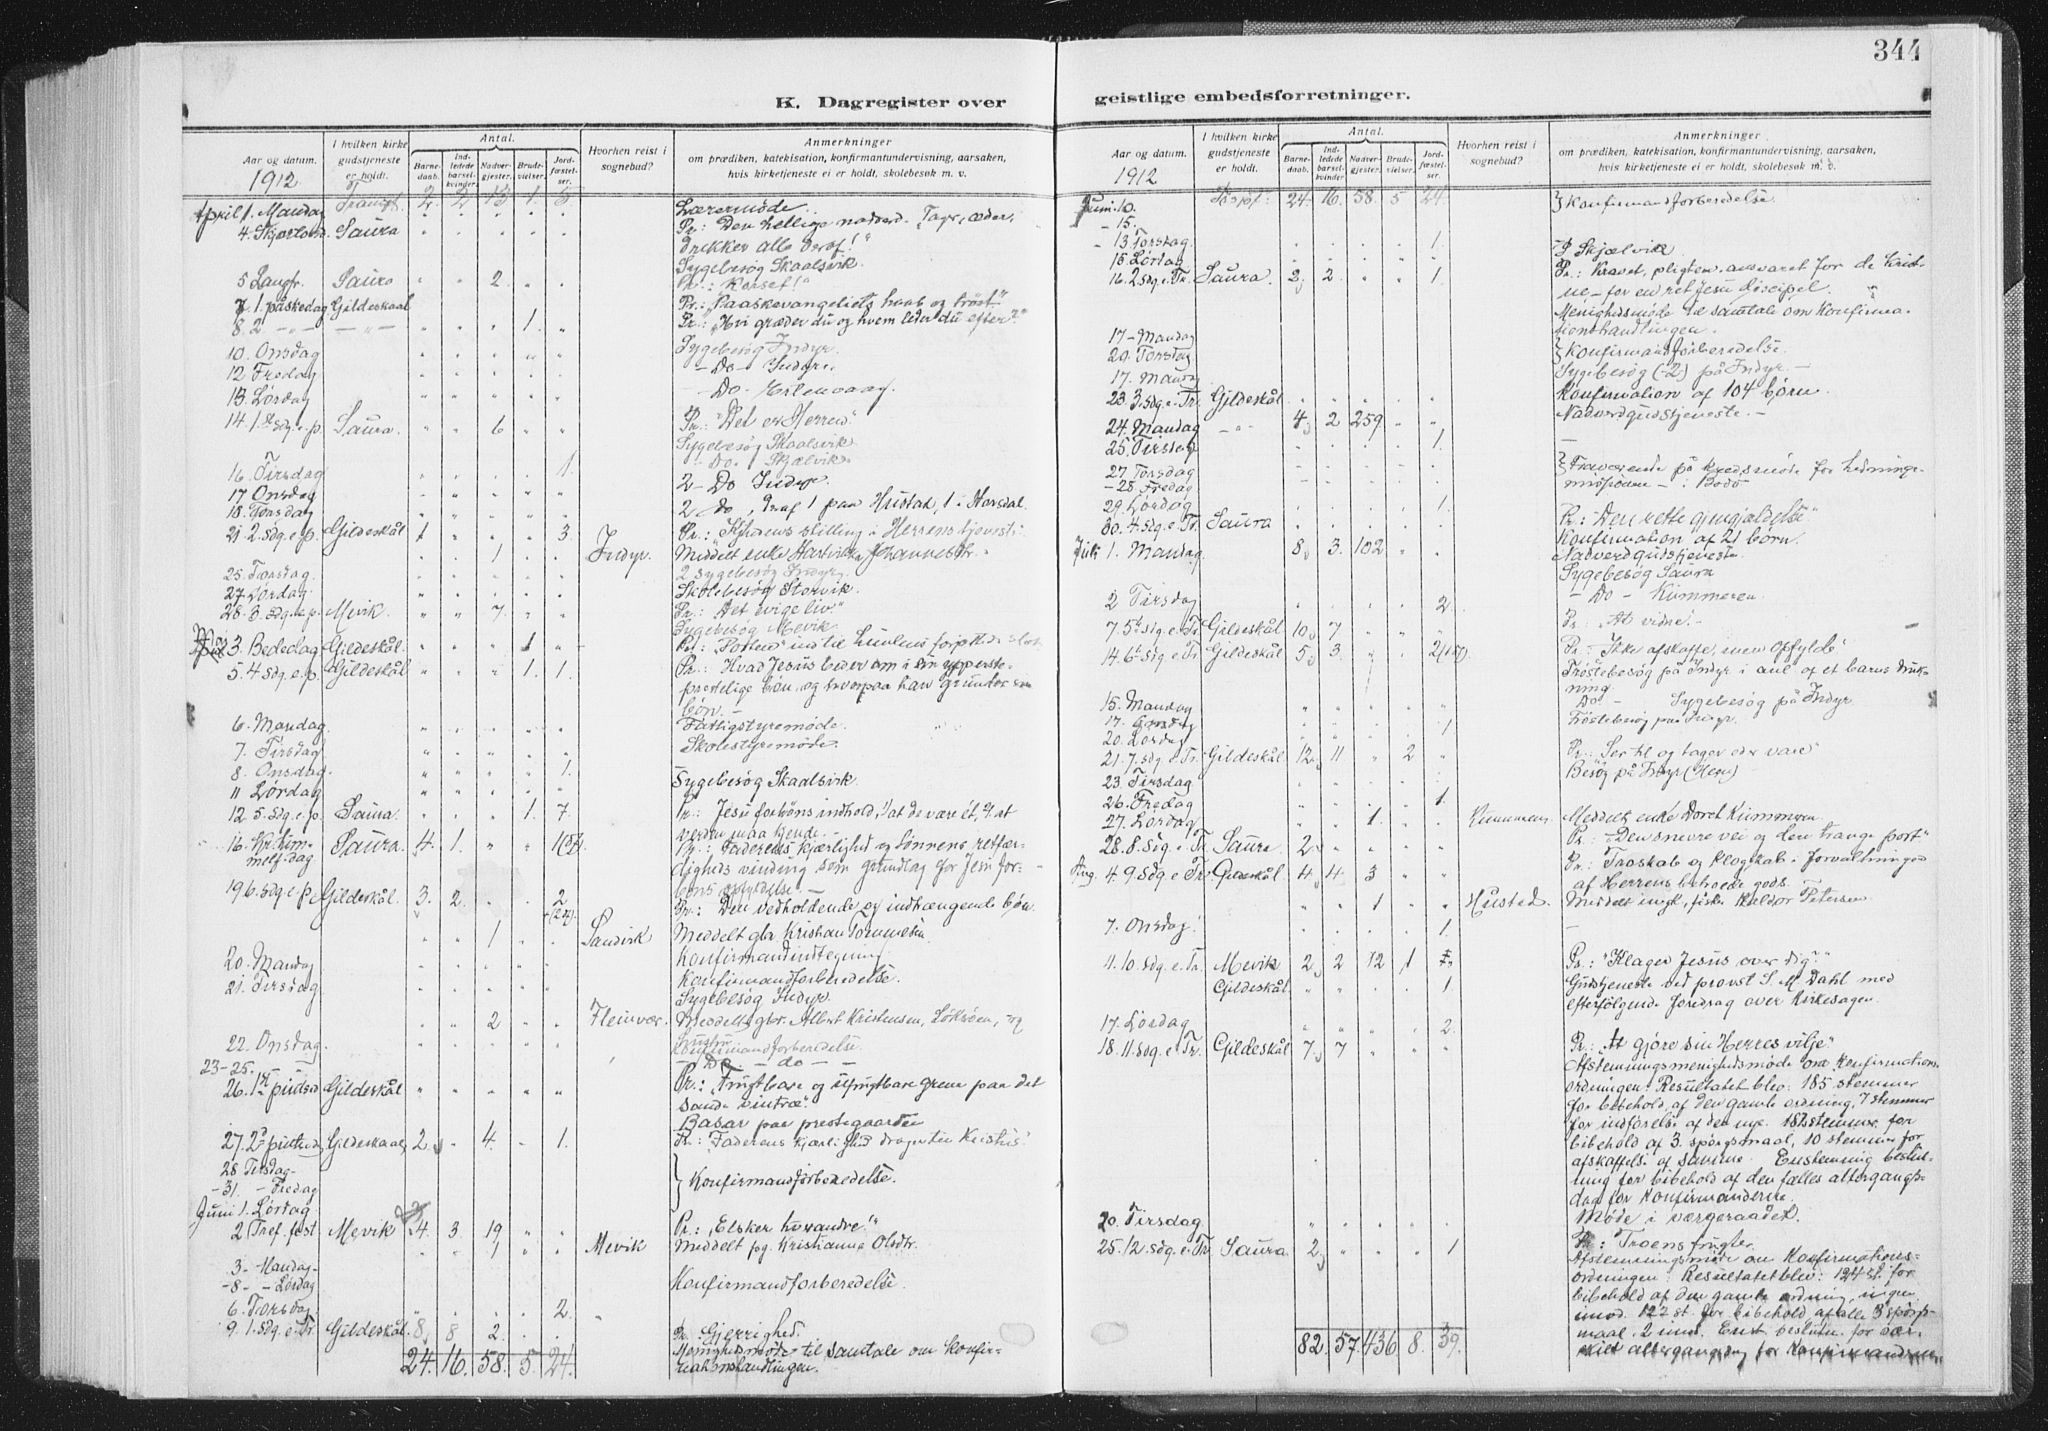 344
K. Dagregister over
geistlige embedsforretninger.
Aar og datum. 1912
I hvilken kirke gudstjeneste er holdt.
Antal.
Barnedaab. Indledede barselkvinder. Nadvergjester. Brudevielser. Jordfæstelser.
Hvorhen reist i sognebud?
Anmerkninger
om prædiken, katekisation, konfirmantundervisning, aarsaken, hvis kirketjeneste ei er holdt, skolebesøk m. v.
Transpt. 2. 2 13 1. 5
April 1. Mandag Lærermøde.
4. Skjærtorsd. Saura Pr.: Den hellige nadverd. "Tager, æder,
drikker alle deraf!"
Sygebesøg Skaalsvik.
5 Langfr. Saura 2. Pr.: Korset!
7. 1. påskedag Gildeskaal Pr.: "Paaskevangeliets haab og trøst"
8. 2 - " - - " - 1. Pr.: "Hvi græder du og hvem leder du efter?"
10. Onsdag Sygebesøg Indyr.
12 Fredag - Do - Indyr.
13 Lørdag - Do -
14 1. sdg. e. p. Saura. 6 Pr.: "Det er Herren."
Sygebesøg Skaalsvik
- Do - Skjælvik
16. Tirsdag 1. 2 - Do Indyr.
17 Onsdag
18. Torsdag 2 Do, Graf 1 paa Hustad, 1 i Horsdal.
21 2. sdg. e. p. Gildeskål 1 3. Pr.: stilling i Herrens tjeneste.
1 Indyr. Meddelt enke
25. Torsdag. 2 sygebesøg Indyr.
27 Lørdag. Skolebesøg Storvik.
28. 3. sdg. e. p. Mevik. 7. Pr.: "Det evige liv."
Sygebesøg Mevik
Mai 3. Bededag Gildeskål. 1
5. 4 sdg. e. p. Gildeskål 1. 1. Pr.: Hvad Jesus beder om i sin yppersteprestelige bøn, og hvorpaa han grunder sin
bøn. -
6. Mandag Fattigstyremøde.
7. Tirsdag Skolestyremøde.
8. Onsdag. 1.
11 Lørdag Sygebesøg Skaalsvik.
12 5. sdg. e. p. Saura. 1. 7. Pr.: Jesu forbøns indhold, 1) at de være ét, 2. at
verden maa kjende. -
16. Kr. himmelf. dag Saura. 4. 1. Pr.: Faderens kjærlighed og Sønnens retfærdigheds vinding som grundlag for Jesu forbøns opfyldelse. -
19 6. sdg. e. p. Gildeskål. 3. 2. 2 Pr.: Den vedholdende og indtrængende bøn.
1 Sandvik Meddelt gbr. Kristian Tommesen.
20. Mandag Konfirmandindtegning
21. Tirsdag Konfirmandforberedelse.
Sygebesøg Indyr.
2 Fleinvær. Meddelt gbr. Albert Kristensen, og
hustru
22. Onsdag. Konfirmandforberedelse.
23-25. - Do - do - -
26. 1ste pintsed. Gildeskål Pr.: "Frugtbare og ufrugtbare grene paa det
sande vintræ."
Basar paa prestegaarden
27. 2den pintsed. Gildeskaal 2 4. 1. Pr.: "Faderens kjærlighed drager til Kristus."
28 Tirsdag -
-31. - Fredag Konfirmandforberedelse.
Juni 1. Lørdag
2 Tref. fest Mevik 4. 3. 19 Pr.: "Elsker hverandre!"
1 Mevik Meddelt pg. Kristianna Olsdtr.
3 - Mandag -
-8 - - Lørdag Konfirmandforberedelse.
6. Torsdag. 2.
9. 1. sdg. e. Tr. Gildeskål. 8 8 2. Pr.: Gjerrighed.
Menighedsmøde til samtale om konfirmationshandlingen.
24. 16. 58. 5. 24.
Aar og datum. 1912
I hvilken kirke gudstjeneste er holdt.
Antal.
Barnedaab. Indledede barselkvinder. Nadvergjester. Brudevielser. Jordfæstelser.
Hvorhen reist i sognebud?
Anmerkninger
om prædiken, katekisation, konfirmantundervisning, aarsaken, hvis kirketjeneste ei er holdt, skolebesøk m. v.
Juni. 10. Traspt: 24. 16. 58. 5 24. Konfirmandforberedelse.
- 15.
- 13 Torsdag. 1.
15 Lørdag Skjælvik
16. 2 sdg. e. Tr. Saura. 2 2. 1 Pr.: Kravet, pligten, ansvaret for de kristne - for en ret Jesu discipel.
Menighedsmøde til samtale om konfirmationshandlingen.
17 - Mandag
20. Torsdag Konfirmandforberedelse.
17. Mandag Sygebesøg (-2) på Indyr. -
23. 3. sdg. e. Tr. Gildeskål Konfirmation af 104 børn.
24. Mandag - " - 4 2 259 Nadverdgudstjeneste. -
25. Tirsdag 1 -
27 Torsdag Fraværende på kredsmøde for hedningemissionen - i Bodø
- 28 Fredag
29. Lørdag 1.
30. 4. sdg. e. Tr. Saura Pr.: "Den rette gjengjældelse"
Konfirmation af 21 børn.
Juli 1. Mandag. 8 3. 102 Nadverdgudstjeneste
Sygebesøg Saura
2 Tirsdag 2. - Do - Kummeren.
7. 5te sdg. e. Tr. Gildeskål 10 7 Pr.: At vidne! -
14. 6te sdg. e. Tr. Gildeskål 5 3. Pr.: "Ikke afskaffe, men opfylde"
Trøstebesøg på Indyr i anl. af et barns drukning
15. Mandag - Do - Sygebesøg på Indyr.
17. Onsdag 1 Trøstebesøg paa Indyr.
20. Lørdag
21. 7. sdg. e. Tr. Gildeskål 12 11 2 Pr.: "Ser til og tager eder vare"
23. Tirsdag Besøg på Indyr
26. Fredag 1.
27. Lørdag 1. Kummeren. Meddelt enke Doret Kummeren
28. 8. sdg. e. Tr. Saura 2 Pr.: - "Den snevre vei og den trange port"
Aug. 4. 9 sdg. e. Tr. Gildeskål 4 4. 3 Pr.: Troskab og klogskab i forvaltning
af Herrens betroede gods.
1 Hustad. Meddelt ungk., fisker Haldor Petersen.
7. Onsdag 1. -
10. sdg. e. Tr. Mevik 2 2 12 1 Pr.: "Klager Jesus over dig?"
Gildeskål. 1 Gudstjeneste ved provst S. M. Dahl med
efterfølgende foredrag over kirkesagen.
17. Lørdag 2.
18. 11. sdg. e. Tr. Gildeskål 7 7 Pr.: "At gjøre sin Herres vilje"
Afstemningsmenighedsmøde om konfirmationsordningen. Resultatet blev: 185 stemmer
for bibehold af den gamle ordning, 7 stemmer
for indførelse af den nye. 182 stemme for
bibehold af 3. spørgsmaal, 10 stemmer for
afskaffelse af samme. Enstemmig beslutning for bibehold af den fælles altergangsdag for konfirmanderne.
20. Tirsdag Møde i værgeraadet.
25. 12. sdg. e. Tr. Saura 2 1 Pr.: Troens frugter.
Afstemningsmøde om konfirmationsordningen. Resultatet blev: 124 st. for
bibehold af den gamle ordning, ingen
imod. 122 st. for bibehold af alle 3 spørsmaal, 2 imod. Enst. beslutn. for særskilt altergangsdag for konfirmanderne.
82. 57. 436 8. 39.